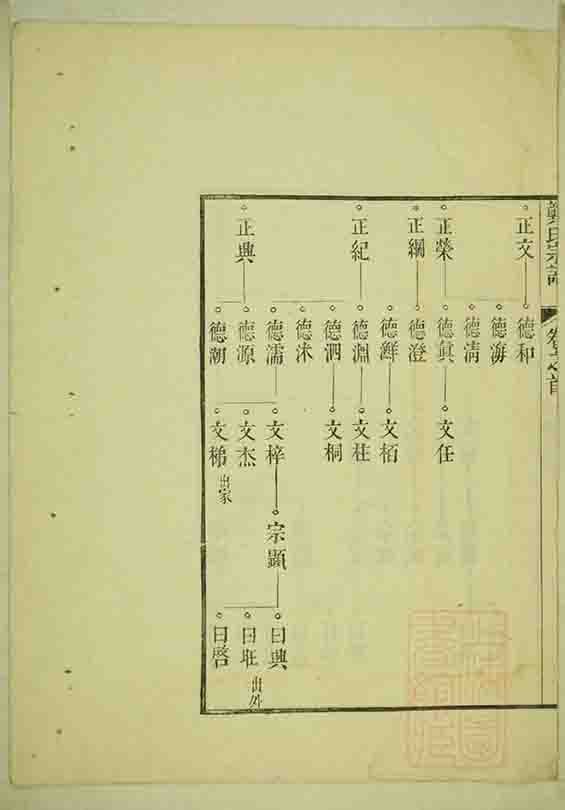 鄭氏宗譜
卷之首
正文
正榮
正綱
正紀
正興
德和
德海
德清
德眞
德澄
德淵
德泗
德沭
德濡
德源
德潮
文任
文栢
文柱
文桐
文梓
文杰
文梯 出家
宗顯
曰興
曰旺 出外
曰啓